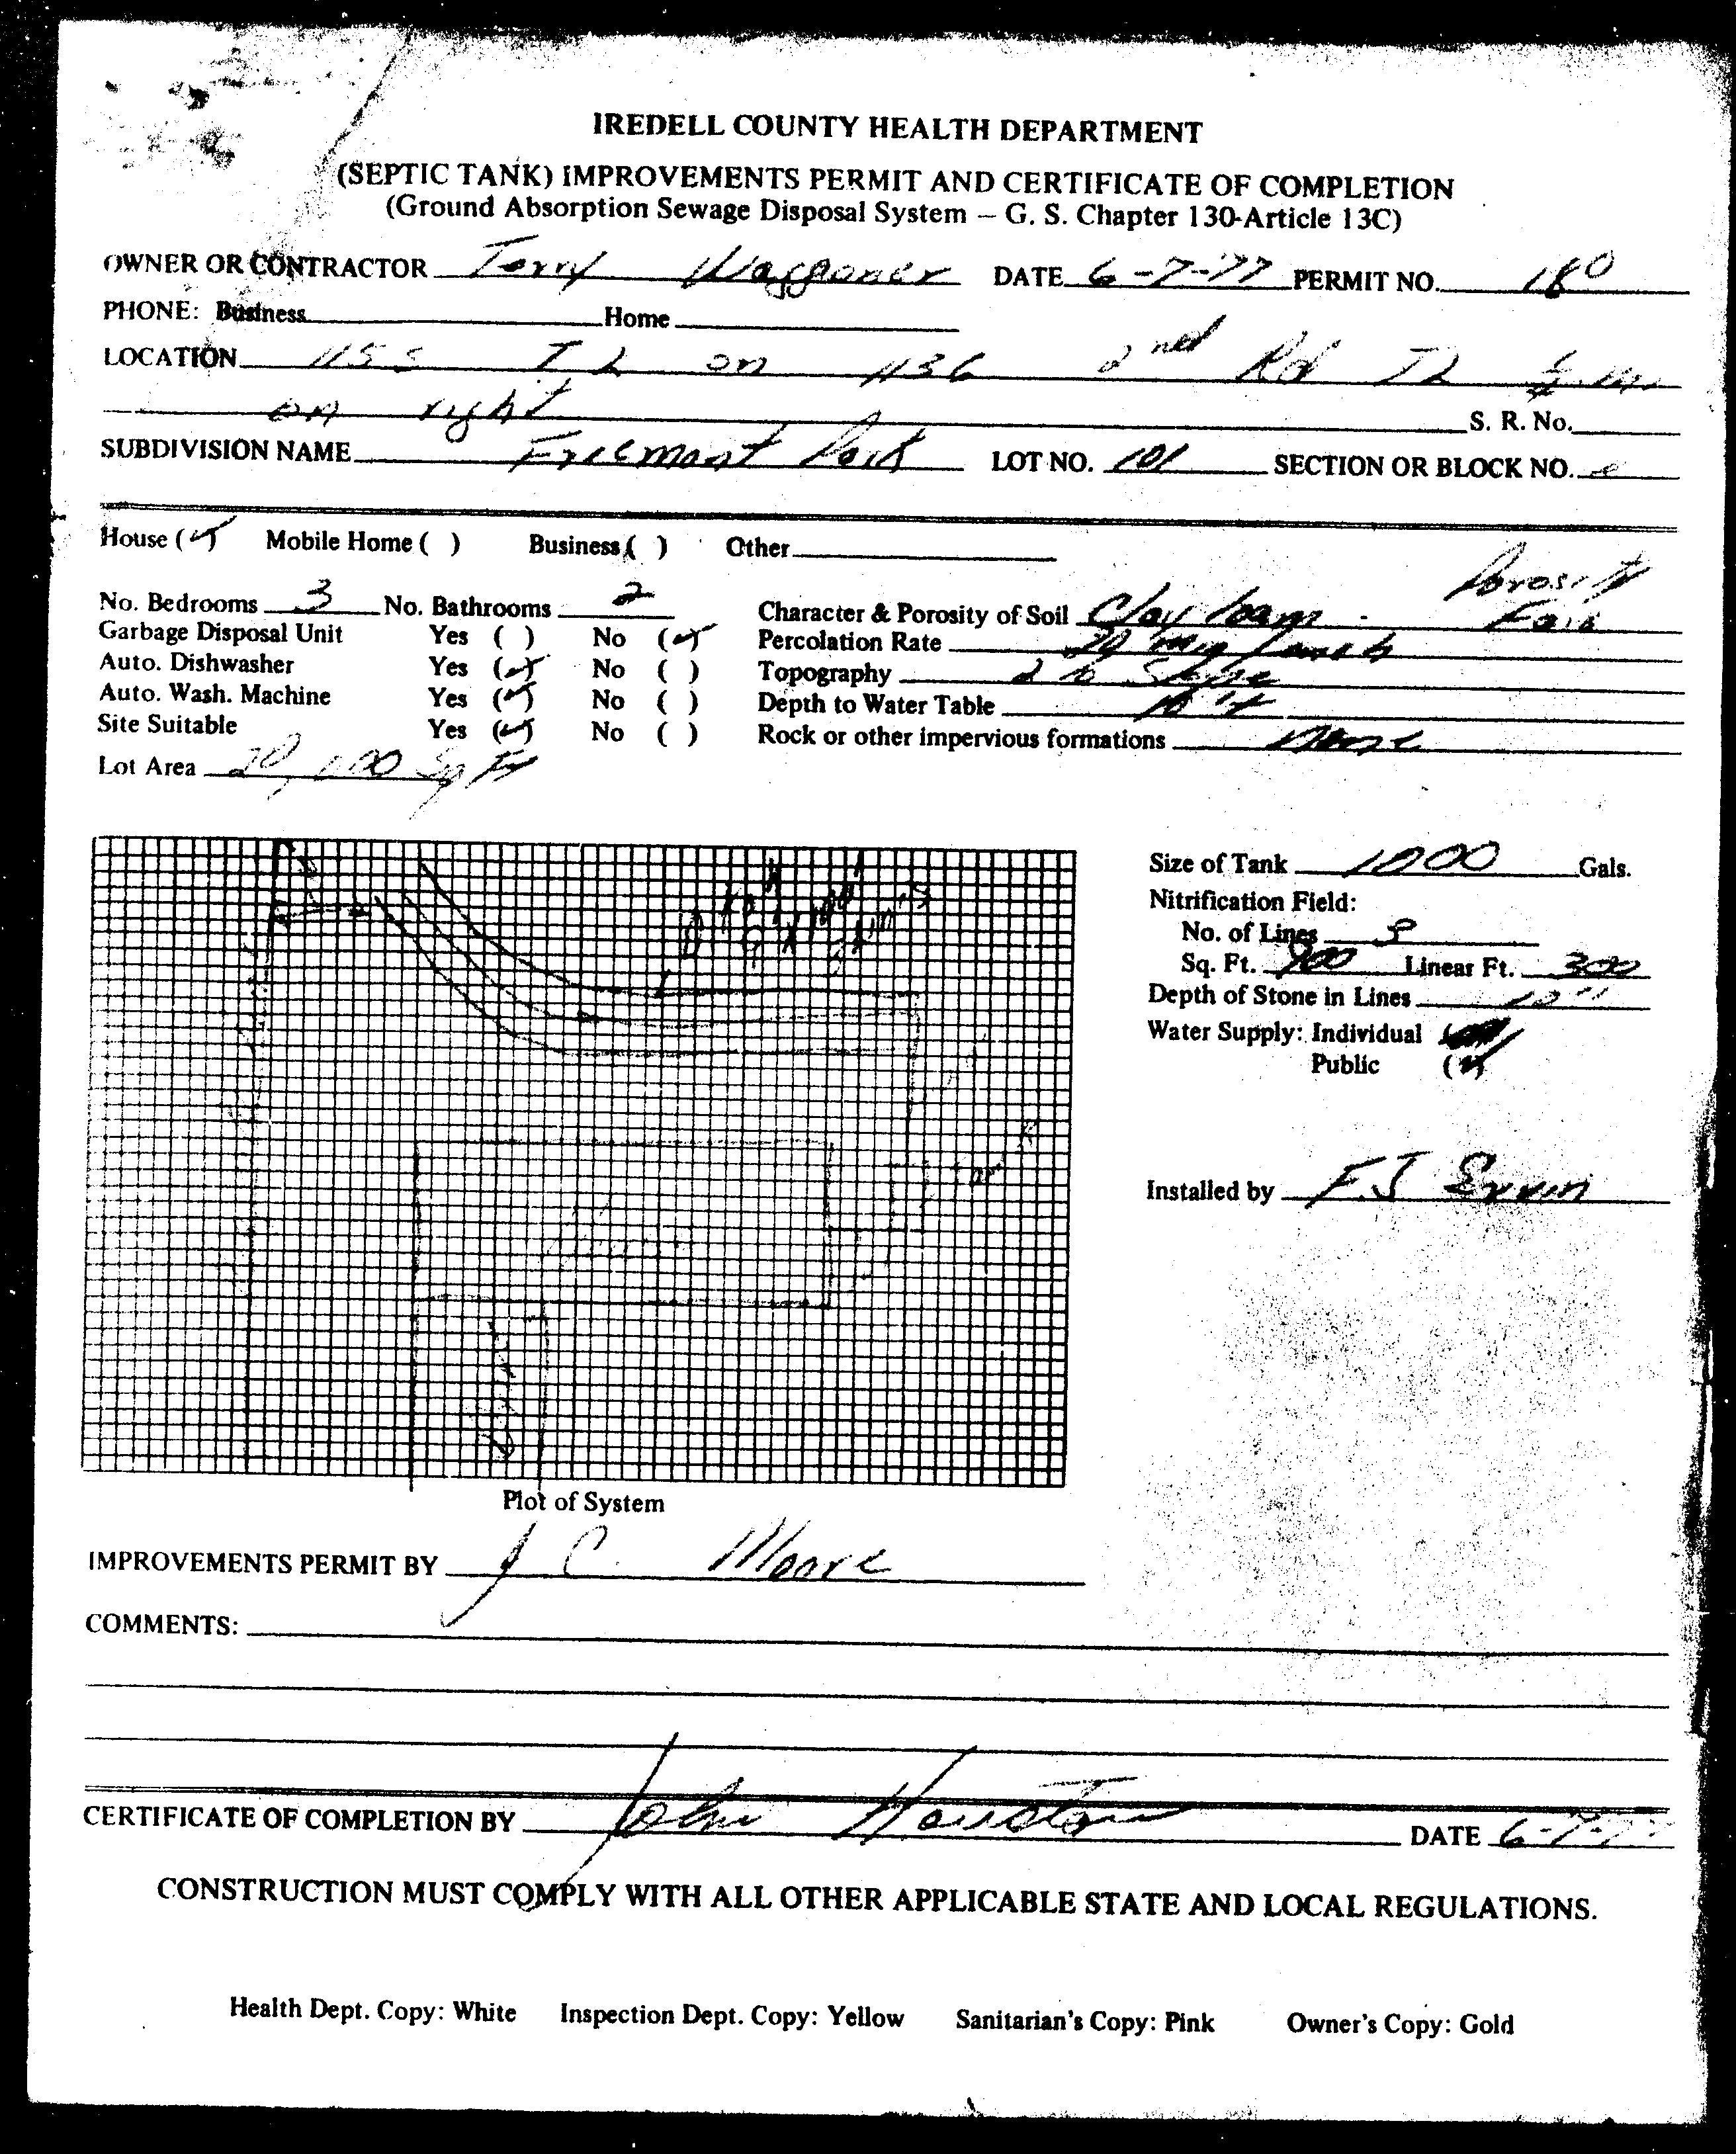 IREDELL COUNTY HEALTH DEPARTMENT
(SEPTIC TANK) IMPROVEMENTS PERMIT AND CERTIFICATE OF COMPLETION
(Ground Absorption Sewage Disposal System – G. S. Chapter 130-Article 13C)
OWNER OR CONTRACTOR Terry Waggoner DATE 6-7-77 PERMIT NO. 180
PHONE: Business Home
LOCATION 115 S T L on 1136 2nd Rd TL
on right S. R. No.
SUBDIVISION NAME Freemont Park LOT NO. 101 SECTION OR BLOCK NO.
House (✓) Mobile Home ( ) Business ( ) Other
Porosity
No. Bedrooms 3 No. Bathrooms 2 Character & Porosity of Soil Clay loam - Fair
Garbage Disposal Unit Yes ( ) No (✓) Percolation Rate
Auto. Dishwasher Yes (✓) No ( ) Topography Slope
Auto. Wash. Machine Yes (✓) No ( ) Depth to Water Table
Site Suitable Yes (✓) No ( ) Rock or other impervious formations None
Lot Area 20,000 Sq Ft
Size of Tank 1000 Gals.
Nitrification Field:
No. of Lines 3
Sq. Ft. 900 Linear Ft. 300
Depth of Stone in Lines
Water Supply: Individual
Public (✓)
Installed by F.J Ervin
Plot of System
IMPROVEMENTS PERMIT BY J C. Moore
COMMENTS:
CERTIFICATE OF COMPLETION BY John Houston DATE 6-7-77
CONSTRUCTION MUST COMPLY WITH ALL OTHER APPLICABLE STATE AND LOCAL REGULATIONS.
Health Dept. Copy: White Inspection Dept. Copy: Yellow Sanitarian's Copy: Pink Owner's Copy: Gold